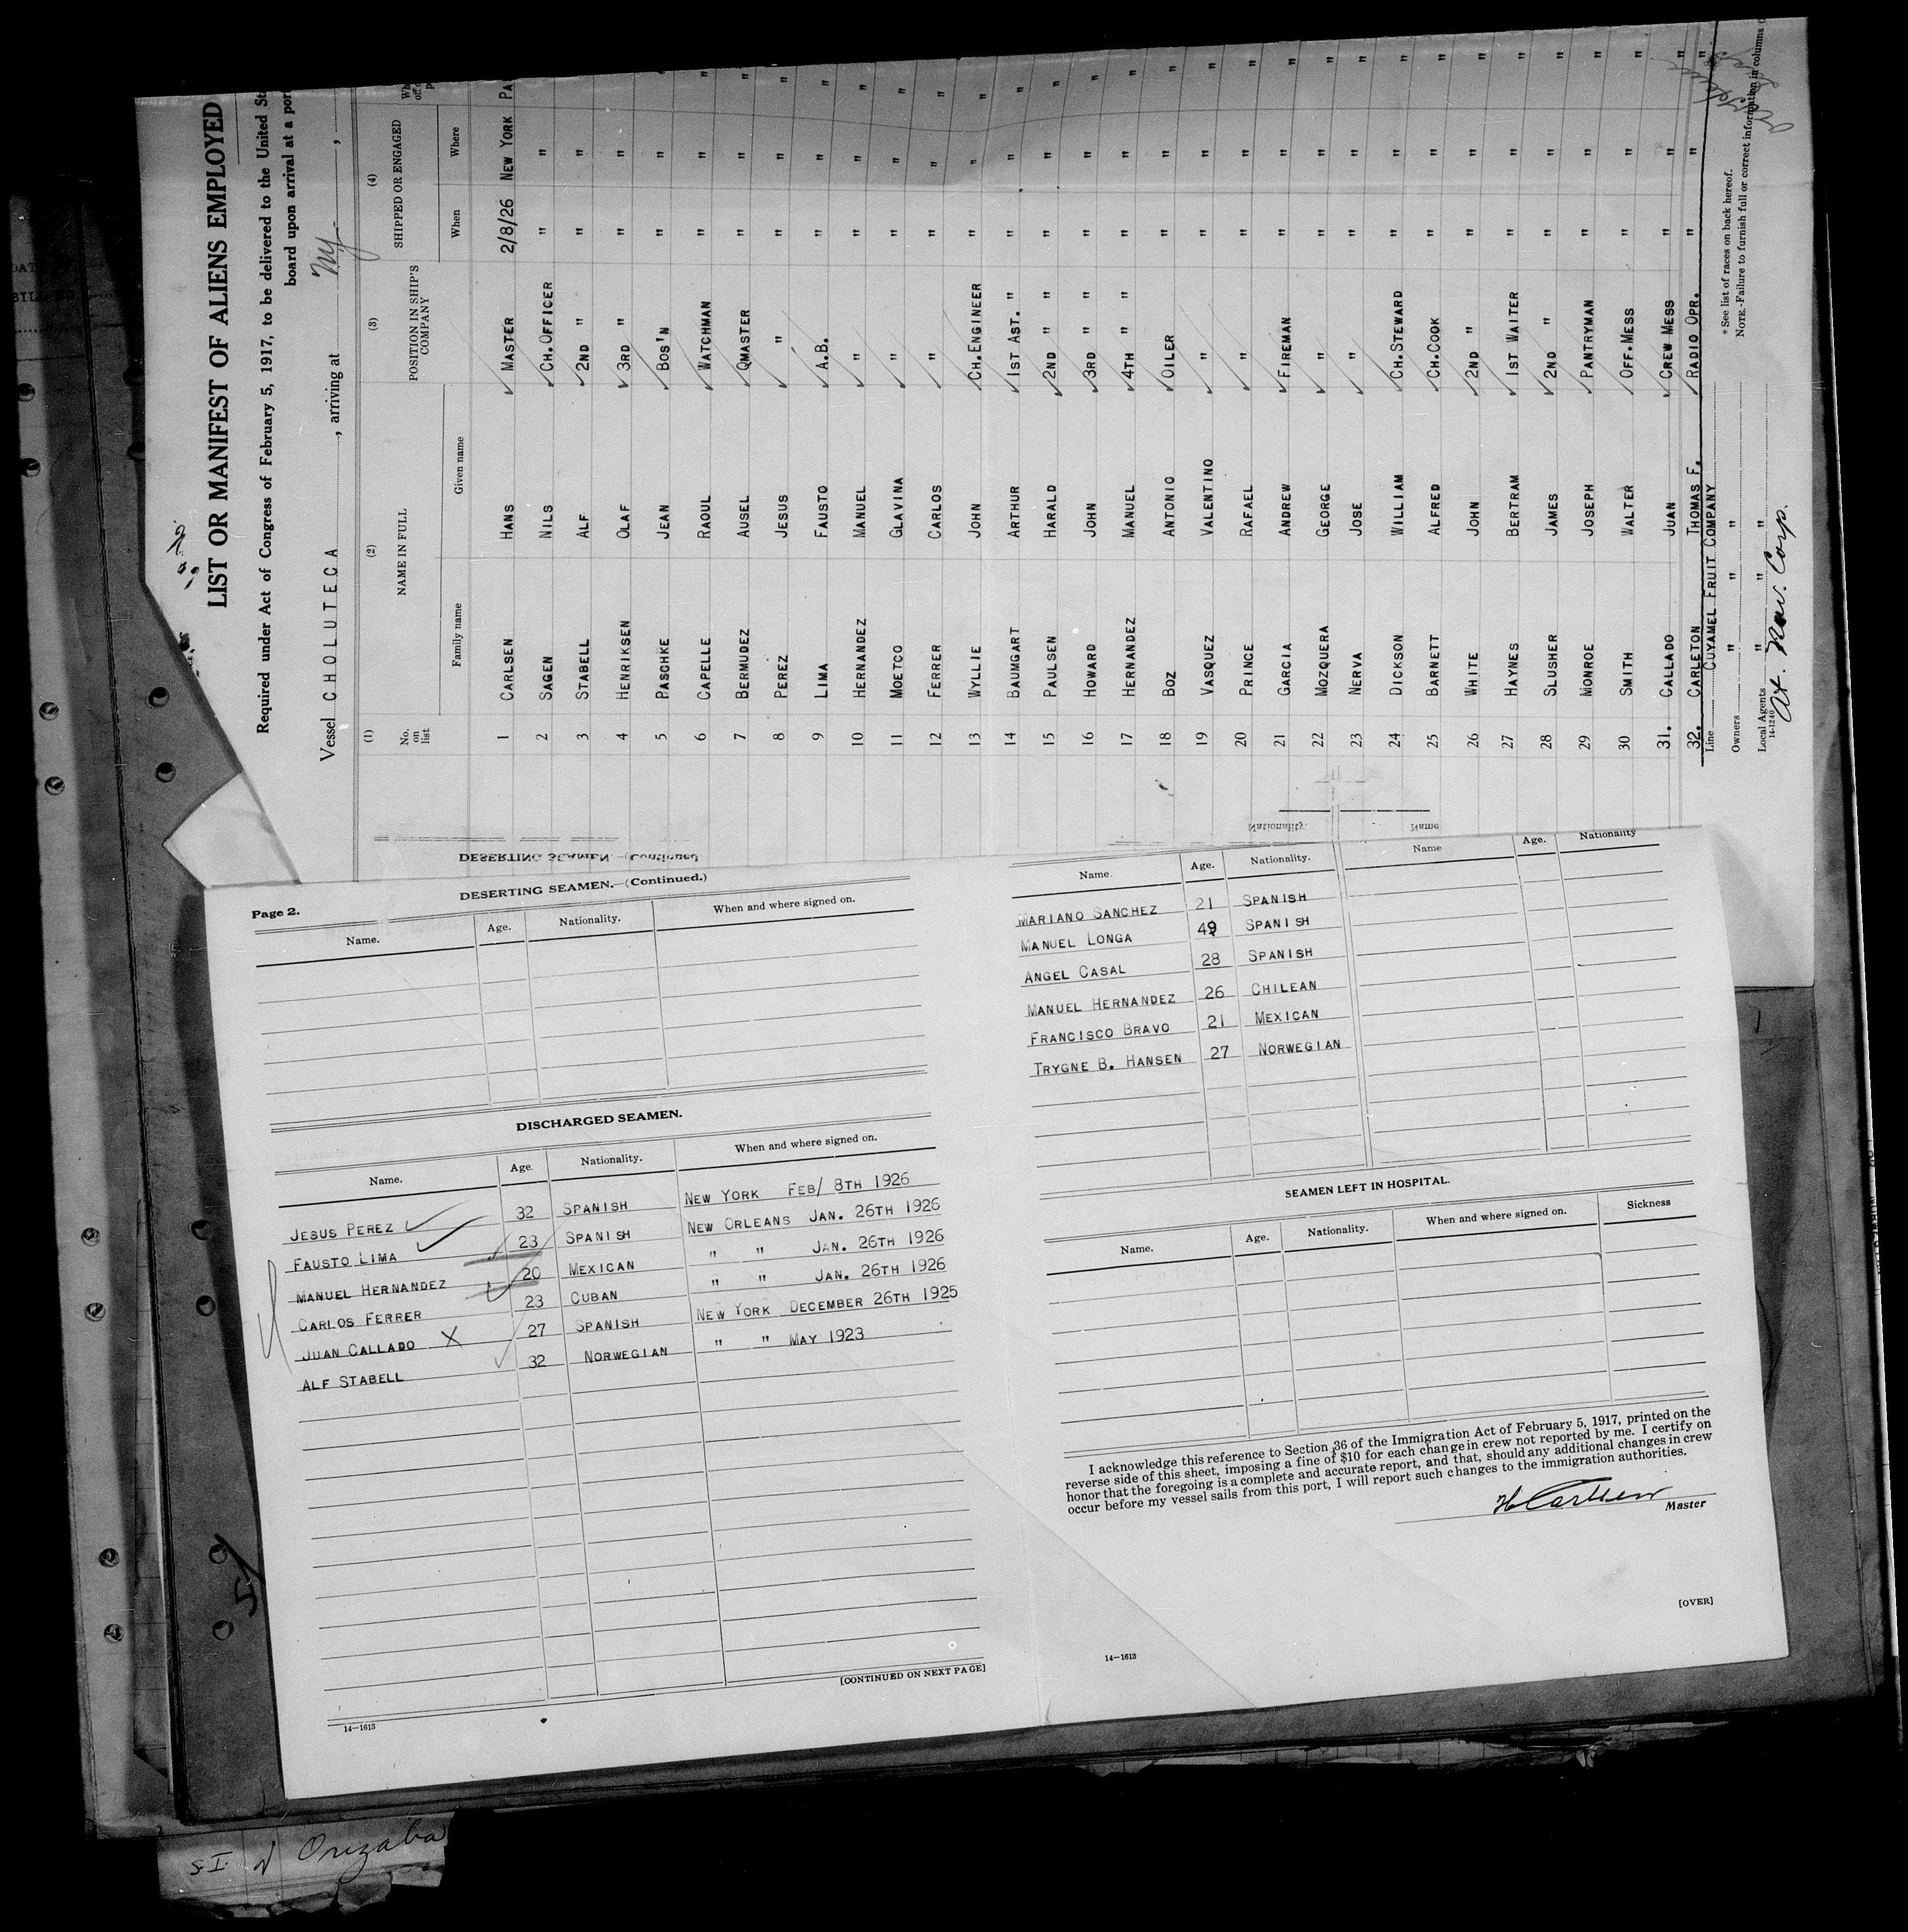 LIST OR MANIFEST OF ALIENS EMPLOYED
Required under Act of Congress of February 5, 1917, to be delivered to the United St
board upon arrival at a por
Vessel CHOLUTECA, arriving at NY,
(1) (2) (3) (4)
No. on list NAME IN FULL POSITION IN SHIP'S COMPANY SHIPPED OR ENGAGED
Family name Given name When Where
1 CARLSEN HANS MASTER 2/8/26 NEW YORK PA
2 SAGEN NILS CH.OFFICER " "
3 STABELL ALF 2ND " " "
4 HENRIKSEN OLAF 3RD " " "
5 PASCHKE JEAN BOS'N " "
6 CAPELLE RAOUL WATCHMAN " " "
7 BERMUDEZ AUSEL QMASTER " " "
8 PEREZ JESUS " " " "
9 LIMA FAUSTO A.B. " " "
10 HERNANDEZ MANUEL " " " "
11 MOETCO GLAVINA " " " "
12 FERRER CARLOS " " " "
13 WYLLIE JOHN CH.ENGINEER " " "
14 BAUMGART ARTHUR 1ST AST. " " " "
15 PAULSEN HARALD 2ND " " " " "
16 HOWARD JOHN 3RD " " " " "
17 HERNANDEZ MANUEL 4TH " " " " "
18 BOZ ANTONIO OILER " " "
19 VASQUEZ VALENTINO " " " "
20 PRINCE RAFAEL " " " "
21 GARCIA ANDREW FIREMAN " " "
22 MOZQUERA GEORGE " " " "
23 NERVA JOSE " " " "
24 DICKSON WILLIAM CH.STEWARD " " "
25 BARNETT ALFRED CH.COOK " " "
26 WHITE JOHN 2ND " " " "
27 HAYNES BERTRAM 1ST WAITER " " "
28 SLUSHER JAMES 2ND " " " "
29 MONROE JOSEPH PANTRYMAN " " "
30 SMITH WALTER OFF.MESS " " "
31. CALLADO JUAN CREW MESS " " "
32. CARLETON THOMAS F. RADIO OPR. " " "
Line CUYAMEL FRUIT COMPANY
Owners " " "
Local Agents " " "
14-1240
At. Nav. Corp.
* See list of races on back hereof.
NOTE.-Failure to furnish full or correct information in columns
DESERTING SEAMEN.—(Continued.)
Page 2.
Name. Age. Nationality. When and where signed on.
DISCHARGED SEAMEN.
Name. Age. Nationality. When and where signed on.
JESUS PEREZ 32 SPANISH NEW YORK FEB/ 8TH 1926
FAUSTO LIMA 23 SPANISH NEW ORLEANS JAN. 26TH 1926
MANUEL HERNANDEZ 20 MEXICAN " " JAN. 26TH 1926
CARLOS FERRER 23 CUBAN " " JAN. 26TH 1926
JUAN CALLADO X 27 SPANISH NEW YORK DECEMBER 26TH 1925
ALF STABELL 32 NORWEGIAN " " MAY 1923
[CONTINUED ON NEXT PAGE]
14—1613
Name. Age. Nationality. Name Age. Nationality
MARIANO SANCHEZ 21 SPANISH
MANUEL LONGA 49 SPANISH
ANGEL CASAL 28 SPANISH
MANUEL HERNANDEZ 26 CHILEAN
FRANCISCO BRAVO 21 MEXICAN
TRYGNE B. HANSEN 27 NORWEGIAN
SEAMEN LEFT IN HOSPITAL.
Name. Age. Nationality. When and where signed on. Sickness
I acknowledge this reference to Section 36 of the Immigration Act of February 5, 1917, printed on the
reverse side of this sheet, imposing a fine of $10 for each change in crew not reported by me. I certify on
honor that the foregoing is a complete and accurate report, and that, should any additional changes in crew
occur before my vessel sails from this port, I will report such changes to the immigration authorities.
H Carlsen
Master
[OVER]
14—1613
S.I. Orizaba